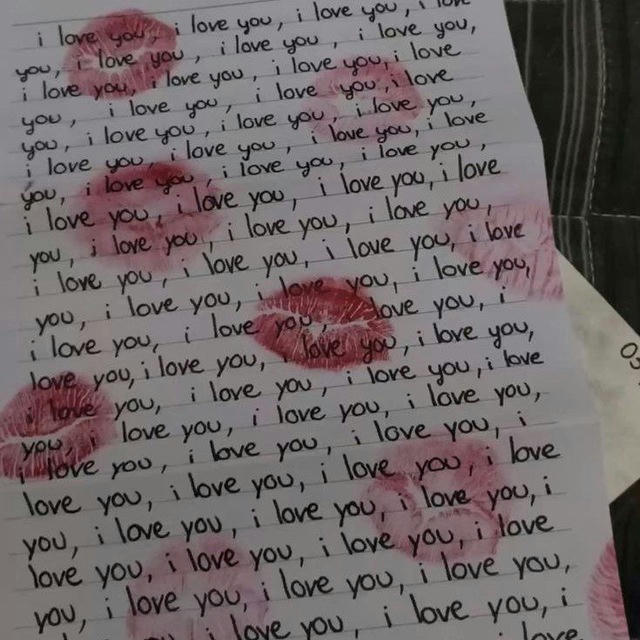 i love you, i love you, i love you, i love
you, i love you, i love you, i love you,
i love you, i love you, i love you, i love
you, i love you, i love you, i love
you, i love you, i love you, i love you,
i love you, i love you, i love you, i love
you, i love you, i love you, i love you,
i love you, i love you, i love you, i love
you, i love you, i love you, i love you,
i love you, i love you, i love you, i love
you, i love you, i love you, i love you,
i love you, i love you, love you, i
love you, i love you, i love you, i love you,
i love you, i love you, i love you, i love
you, i love you, i love you, i love you,
i love you, i love you, i love you, i
love you, i love you, i love you, i love
you, i love you, i love you, i love you, i
love you, i love you, i love you, i love
you, i love you, i love you, i love you,
i love you, i love you, i
love